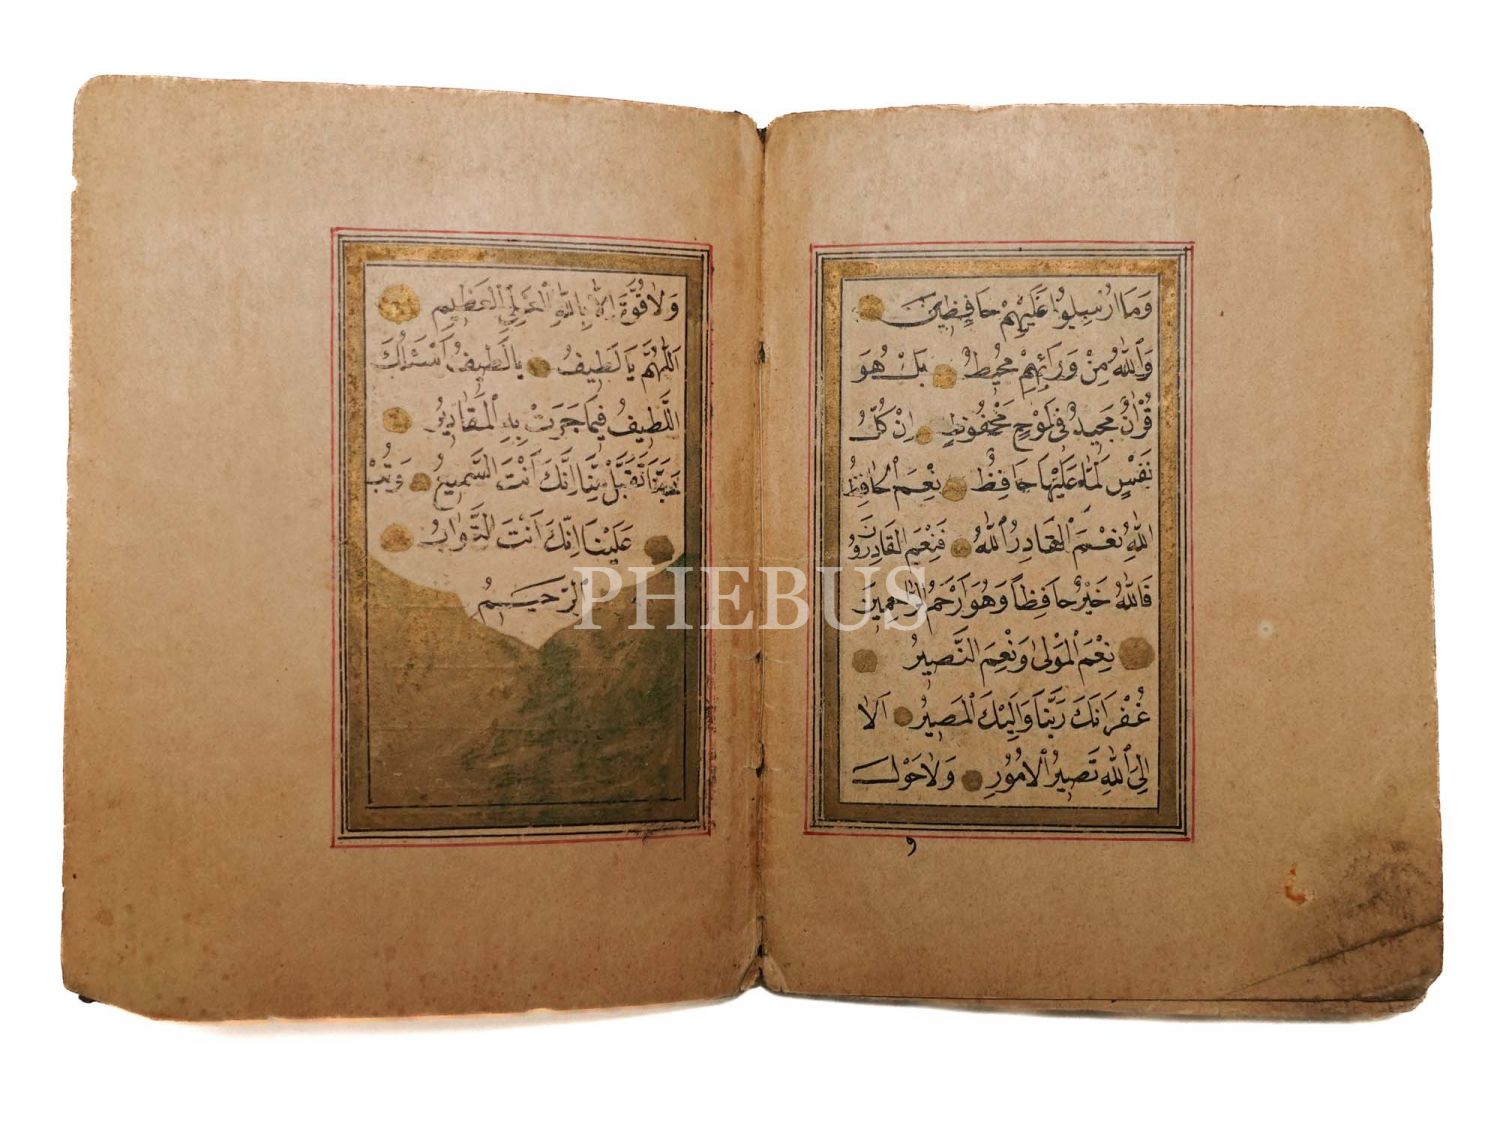 وَمَا اُرْسِلُوا عَلَيْهِمْ حَافِظِينَ
وَاللّٰهُ مِنْ وَرَائِهِمْ مُحِيطٌ بَلْ هُوَ
قُرْاٰنٌ مَجِيدٌ فِى لَوْحٍ مَحْفُوظٍ اِنْ كُلُّ
نَفْسٍ لَمَّا عَلَيْهَا حَافِظٌ نِعْمَ الْحَافِظُ
اللّٰهُ نِعْمَ الْقَادِرُ اللّٰهُ فَنِعْمَ الْقَادِرُونَ
فَاللّٰهُ خَيْرٌ حَافِظاً وَهُوَ اَرْحَمُ الرَّاحِمِينَ
نِعْمَ الْمَوْلٰى وَنِعْمَ النَّصِيرُ
غُفْرَانَكَ رَبَّنَا وَاِلَيْكَ الْمَصِيرُ اَلَا
اِلَى اللّٰهِ تَصِيرُ الْاُمُورُ وَلَا حَوْلَ
وَلَا قُوَّةَ اِلَّا بِاللّٰهِ الْعَلِىِّ الْعَظِيمِ
اَللّٰهُمَّ يَا لَطِيفُ يَا لَطِيفُ اَسْئَلُكَ
اللَّطِيفُ فِيمَا جَرَتْ بِهِ الْمَقَادِيرُ
رَبَّنَا تَقَبَّلْ مِنَّا اِنَّكَ اَنْتَ السَّمِيعُ وَتُبْ
عَلَيْنَا اِنَّكَ اَنْتَ التَّوَّابُ
الرَّحِيمُ
PHEBUS